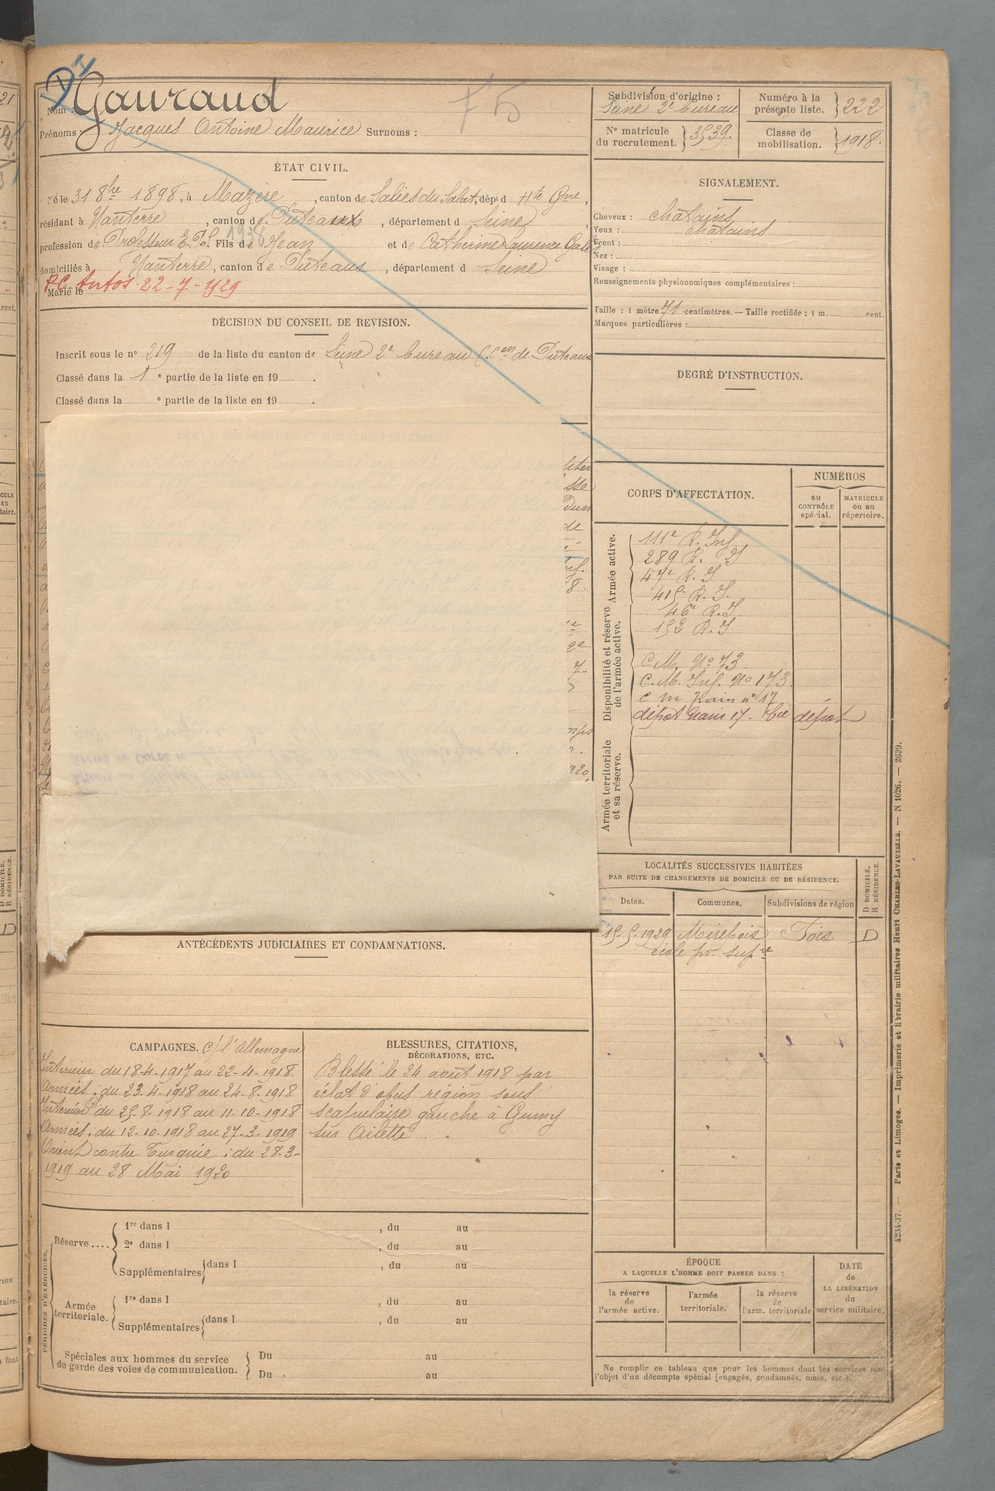 Nom : Gauraud
Prénoms : Jacques Antoine Maurice Surnoms :
75
ÉTAT CIVIL.
Né le 31 8bre 1898, à Mazère, canton de Salies du Salat, dépt d Hte Gne,
résidant à Nanterre, canton de Puteaux, département d Seine
profession de Professeur E.P.S. Fils de Jean et de Catherine Laurence
domiciliés à Nanterre, canton de Puteaux, département d Seine
P.C. Autos 22-7-1929
Marié le
DÉCISION DU CONSEIL DE REVISION.
Inscrit sous le no 219 de la liste du canton de Seine 2e bureau (Con de Puteaux
Classé dans la 1e partie de la liste en 19 .
Classé dans la e partie de la liste en 19 .
ANTÉCÉDENTS JUDICIAIRES ET CONDAMNATIONS.
CAMPAGNES. C/ l'Allemagne
Intérieur du 18-4-1917 au 22-4-1918
Armées : du 23-4-1918 au 24-8-1918
Intérieur du 25-8-1918 au 11-10-1918
Armées : du 12-10-1918 au 27-3-1919
Orient contre Turquie : du 28-3-
1919 au 28 Mai 1920
BLESSURES, CITATIONS,
DÉCORATIONS, ETC.
Blessé le 24 août 1918 par
éclat d'obus région sous
scapulaire gauche à Guny
sur Ailette
PÉRIODES D'EXERCICES.
Réserve .... 1re dans l , du au
2e dans l , du au
Supplémentaires dans l , du au
Armée territoriale. 1re dans l , du au
Supplémentaires dans l , du au
Spéciales aux hommes du service
de garde des voies de communication.
Du au
Du au
Subdivision d'origine :
Seine 2e bureau
No matricule
du recrutement. 3539.
Numéro à la
présente liste. 222
Classe de
mobilisation. 1918.
SIGNALEMENT.
Cheveux : chatains
Yeux : chatains
Front :
Nez :
Visage :
Renseignements physionomiques complémentaires :
Taille : 1 mètre 71 centimètres. — Taille rectifiée : 1 m. cent.
Marques particulières :
DEGRÉ D'INSTRUCTION.
CORPS D'AFFECTATION.
NUMÉROS
AU
CONTRÔLE
spécial.
MATRICULE
ou au
répertoire.
Armée active.
111e R. Inf
289 R. I
47e R. I
415 R. I.
46e R. I
152 R. I
Disponibilité et réserve
de l'armée active.
C.M. No 73
C.M. Inf. No 173
c m train no 17
dépot train 17. Cie dépot
Armée territoriale
et sa réserve.
LOCALITÉS SUCCESSIVES HABITÉES
PAR SUITE DE CHANGEMENTS DE DOMICILE OU DE RÉSIDENCE.
Dates. Communes. Subdivisions de région
D DOMICILE.
R RÉSIDENCE.
15-5-1929 Mirepois Foix D
école pr. supre
ÉPOQUE
A LAQUELLE L'HOMME DOIT PASSER DANS :
la réserve
de
l'armée active.
l'armée
territoriale.
la réserve
de
l'arm. territoriale
DATE
de
LA LIBÉRATION
du
service militaire.
Ne remplir ce tableau que pour les hommes dont les services font
l'objet d'un décompte spécial (engagés, condamnés, omis, etc.).
4234-37. — Paris et Limoges. — Imprimerie et librairie militaires Henri CHARLES-LAVAUZELLE. — N 1026. — 2639.